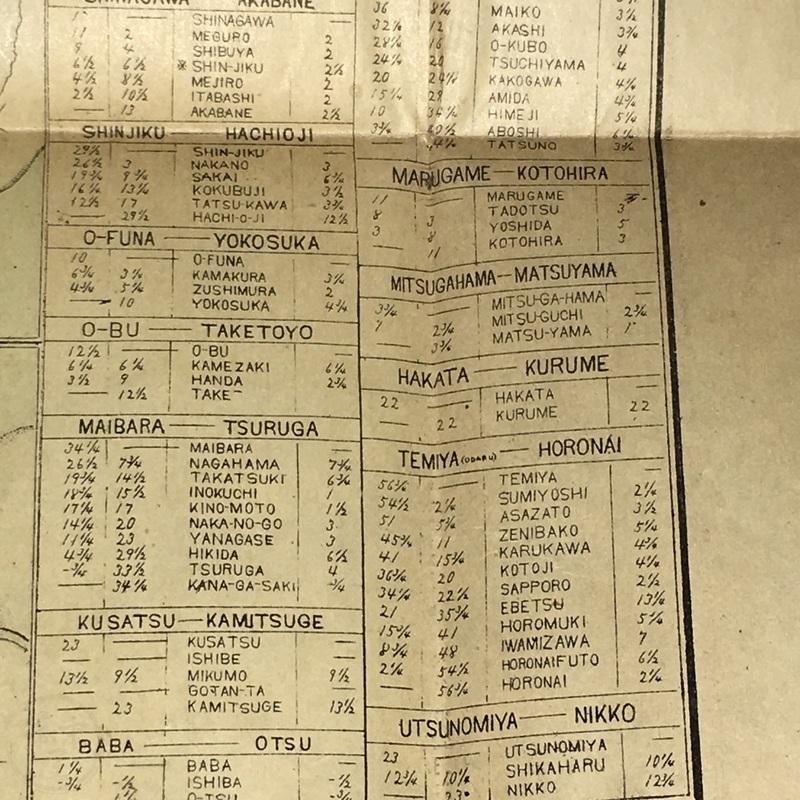 SHINAGAWA AKABANE
— SHINAGAWA —
11 2 MEGURO 2
9 4 SHIBUYA 2
6½ 6½ ※ SHIN-JIKU 2½
4½ 8½ MEJIRO 2
2½ 10½ ITABASHI 2
— 13 AKABANE 2½
SHINJIKU — HACHIOJI
29½ — SHIN-JIKU —
26½ 3 NAKANO 3
19¾ 9¾ SAKAI 6¾
16¼ 13¼ KOKUBUJI 3½
12½ 17 TATSU-KAWA 3¾
— 29½ HACHI-O-JI 12½
O-FUNA — YOKOSUKA
10 — O-FUNA —
6¾ 3¼ KAMAKURA 3¼
4¾ 5¼ ZUSHIMURA 2
— 10 YOKOSUKA 4¾
O-BU — TAKETOYO
12½ — O-BU —
6¼ 6¼ KAMEZAKI 6¼
3½ 9 HANDA 2¾
— 12½ TAKE
MAIBARA — TSURUGA
34¼ — MAIBARA —
26½ 7¾ NAGAHAMA 7¾
19¾ 14½ TAKATSUKI 6¾
18¾ 15½ INOKUCHI 1
17¼ 17 KINO-MOTO 1½
14¼ 20 NAKA-NO-GO 3
11¼ 23 YANAGASE 3
4¾ 29½ HIKIDA 6½
-¾ 33½ TSURUGA 4
— 34¼ KANA-GA-SAKI -¾
KUSATSU — KAMITSUGE
23 — KUSATSU —
— — ISHIBE —
13½ 9½ MIKUMO 9½
— — GOTAN-TA —
— 23 KAMITSUGE 13½
BABA — OTSU
1¼ — BABA —
-¾ -½ ISHIBA -½
O-TSU
36 8¼ MAIKO 3½
32¼ 12 AKASHI 3¾
28¼ 16 O-KUBO 4
24¼ 20 TSUCHIYAMA 4
20 24¼ KAKOGAWA 4¼
15¼ 29 AMIDA 4¾
10 34¼ HIMEJI 5¼
3¾ 40½ ABOSHI 6¼
— TATSUNO 3¾
MARUGAME — KOTOHIRA
11 — MARUGAME
8 3 TADOTSU 3
3 8 YOSHIDA 5
— 11 KOTOHIRA 3
MITSUGAHAMA — MATSUYAMA
3¾ — MITSU-GA-HAMA —
1 2¾ MITSU-GUCHI 2¾
— 3¾ MATSU-YAMA 1
HAKATA — KURUME
22 — HAKATA —
— 22 KURUME 22
TEMIYA (OTARU) — HORONAI
56¾ — TEMIYA —
54½ 2¼ SUMIYOSHI 2¼
51 5¾ ASAZATO 3½
45¾ 11 ZENIBAKO 5¼
41 15¾ KARUKAWA 4¾
36¾ 20 KOTOJI 4¼
34¼ 22½ SAPPORO 2½
21 35¾ EBETSU 13¼
15¾ 41 HOROMUKI 5¼
8¾ 48 IWAMIZAWA 7
2¼ 54½ HORONAIFUTO 6½
— 56¾ HORONAI 2¼
UTSUNOMIYA — NIKKO
23 — UTSUNOMIYA —
12¾ 10¼ SHIKAHARU 10¼
— 23 NIKKO 12¾